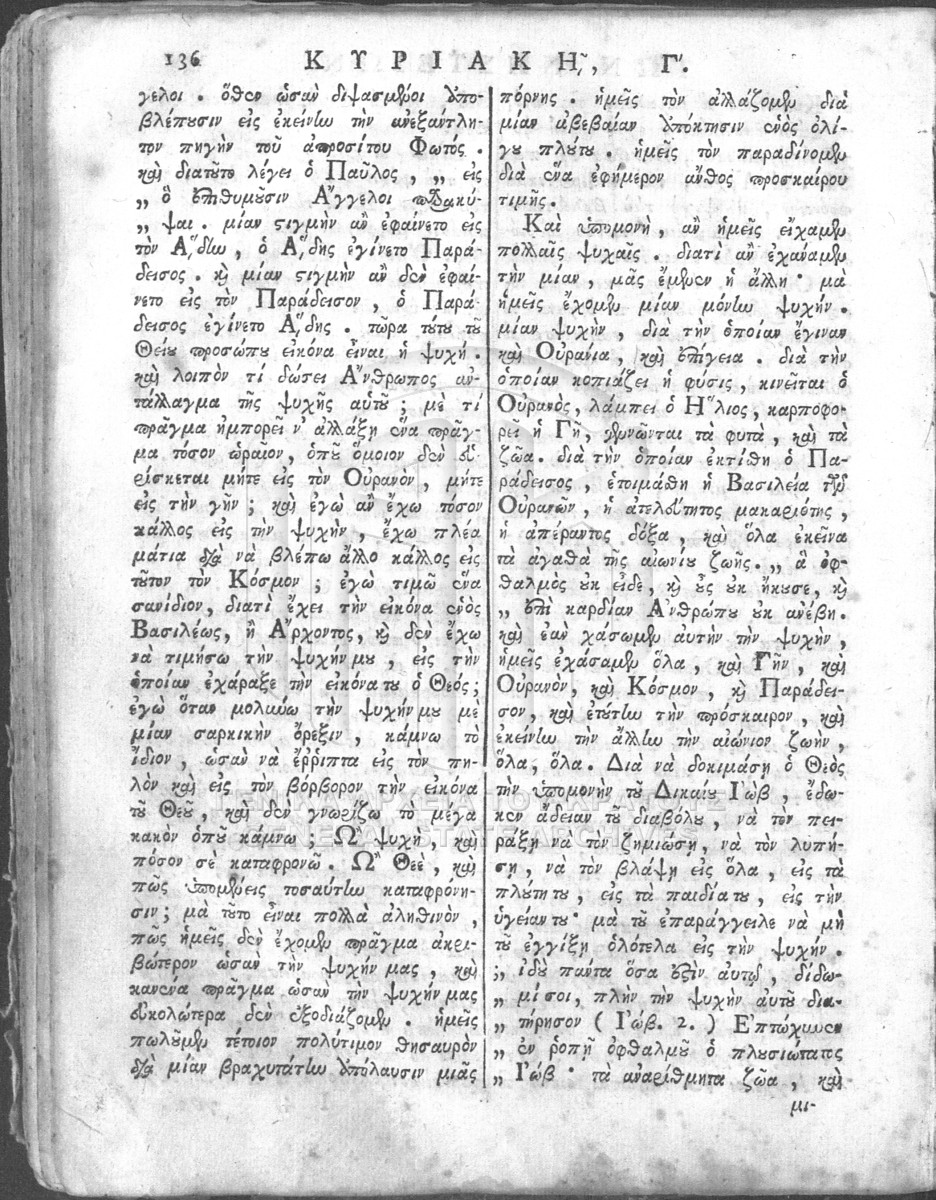 136 ΚΥΡΙΑΚΗ͂, Γ'.
γελοι . ὅθεν ὡσὰν διψασμένοι ἀπο-
βλέπουσιν εἰς ἐκείνην τὴν ἀνεξάντλη-
τον πηγὴν τοῦ ἀπροσίτου Φωτός .
καὶ διατοῦτο λέγει ὁ Παῦλος , „ εἰς
„ ὃ ἐπιθυμοῦσιν Ἄγγελοι παρακύ-
„ ψαι . μίαν στιγμὴν ἂν ἐφαίνετο εἰς
τὸν ᾍδην , ὁ ᾍδης ἐγίνετο Παρά-
δεισος . καὶ μίαν στιγμὴν ἂν δὲν ἐφαί-
νετο εἰς τὸν Παράδεισον , ὁ Παρά-
δεισος ἐγίνετο ᾍδης . τῶρα τούτου τοῦ
Θείου προσώπου εἰκόνα εἶναι ἡ ψυχή .
καὶ λοιπὸν τί δώσει Ἄνθρωπος ἀν-
τάλλαγμα τῆς ψυχῆς αὑτοῦ ; μὲ τί
πρᾶγμα ἠμπορεῖ ν' ἀλλάξῃ ἕνα πρᾶγ-
μα τόσον ὡραῖον , ὁποῦ ὅμοιον δὲν εὑ-
ρίσκεται μήτε εἰς τὸν Οὐρανὸν , μήτε
εἰς τὴν γῆν ; καὶ ἐγὼ ἂν ἔχω τόσον
κάλλος εἰς τὴν ψυχὴν , ἔχω πλέα
μάτια διὰ νὰ βλέπω ἄλλο κάλλος εἰς
τοῦτον τὸν Κόσμον ; ἐγὼ τιμῶ ἕνα
σανίδιον , διατὶ ἔχει τὴν εἰκόνα ἑνὸς
Βασιλέως, ἢ Ἄρχοντος, καὶ δὲν ἔχω
νὰ τιμήσω τὴν ψυχήν μου , εἰς τὴν
ὁποίαν ἐχάραξε τὴν εἰκόνα του ὁ Θεός;
ἐγὼ ὅταν μολύνω τὴν ψυχήν μου μὲ
μίαν σαρκικὴν ὄρεξιν , κάμνω τὸ
ἴδιον , ὡσὰν νὰ ἔρριπτα εἰς τὸν πη-
λὸν καὶ εἰς τὸν βόρβορον τὴν εἰκόνα
τοῦ Θεοῦ , καὶ δὲν γνωρίζω τὸ μέγα
κακὸν ὁποῦ κάμνω ; Ὦ ψυχὴ , καὶ
πόσον σὲ καταφρονῶ . Ὦ Θεὲ , καὶ
πῶς ὑπομένεις τοσαύτην καταφρόνη-
σιν ; μὰ τοῦτο εἶναι πολλὰ ἀληθινὸν ,
πῶς ἡμεῖς δὲν ἔχομεν πρᾶγμα ἀκρι-
βώτερον ὡσὰν τὴν ψυχήν μας , καὶ
κανένα πρᾶγμα ὡσὰν τὴν ψυχήν μας
εὐκολώτερα δὲν ἐξοδιάζομεν . ἡμεῖς
πωλοῦμεν τέτοιον πολύτιμον θησαυρὸν
διὰ μίαν βραχυτάτην ἀπόλαυσιν μιᾶς
πόρνης . ἡμεῖς τὸν ἀλλάζομεν διὰ
μίαν ἀβεβαίαν ἀπόκτησιν ἑνὸς ὀλί-
γου πλούτου . ἡμεῖς τὸν παραδίνομεν
διὰ ἕνα ἐφήμερον ἄνθος προσκαίρου
τιμῆς .
Καὶ ὑπομονὴ , ἂν ἡμεῖς εἴχαμεν
πολλαῖς ψυχαῖς . διατὶ ἂν ἐχάναμεν
τὴν μίαν , μᾶς ἔμενεν ἡ ἄλλη · μὰ
ἡμεῖς ἔχομεν μίαν μόνην ψυχὴν .
μίαν ψυχὴν , διὰ τὴν ὁποίαν ἔγιναν
καὶ Οὐράνια , καὶ ἐπίγεια . διὰ τὴν
ὁποίαν κοπιάζει ἡ φύσις , κινεῖται ὁ
Οὐρανὸς , λάμπει ὁ Ἥλιος , καρποφο-
ρεῖ ἡ Γῆ, γεννῶνται τὰ φυτὰ , καὶ τὰ
ζῶα. διὰ τὴν ὁποίαν ἐκτίσθη ὁ Πα-
ράδεισος , ἑτοιμάσθη ἡ Βασιλεία τῶν
Οὐρανῶν , ἡ ἀτελεύτητος μακαριότης ,
ἡ ἀπέραντος δόξα , καὶ ὅλα ἐκεῖνα
τὰ ἀγαθὰ τῆς αἰωνίου ζωῆς . „ ἃ ὀφ-
θαλμὸς οὐκ εἶδε , καὶ οὖς οὐκ ἤκουσε, καὶ
„ ἐπὶ καρδίαν Ἀνθρώπου οὐκ ἀνέβη .
καὶ ἐὰν χάσωμεν αὐτὴν τὴν ψυχὴν ,
ἡμεῖς ἐχάσαμεν ὅλα , καὶ Γῆν , καὶ
Οὐρανὸν, καὶ Κόσμον , καὶ Παράδει-
σον, καὶ ἐτούτην τὴν πρόσκαιρον , καὶ
ἐκείνην τὴν ἄλλην τὴν αἰώνιον ζωὴν ,
ὅλα, ὅλα. Διὰ νὰ δοκιμάσῃ ὁ Θεὸς
τὴν ὑπομονὴν τοῦ Δικαίου Ἰὼβ , ἔδω-
κεν ἄδειαν τοῦ διαβόλου , νὰ τὸν πει-
ράξῃ νὰ τὸν ζημιώσῃ, νὰ τὸν λυπή-
σῃ , νὰ τὸν βλάψῃ εἰς ὅλα , εἰς τὰ
πλούτη του , εἰς τὰ παιδία του , εἰς τὴν
ὑγείαν του · μὰ τοῦ ἐπαράγγειλε νὰ μὴ
τοῦ ἐγγίξῃ ὁλότελα εἰς τὴν ψυχὴν .
„ ἰδοὺ πάντα ὅσα ἐστὶν αὐτῷ , δίδω-
„ μί σοι, πλὴν τὴν ψυχὴν αὐτοῦ δια-
„ τήρησον ( Ἰώβ. 2. ) Ἐπτώχυνεν
„ ἐν ῥοπῇ ὀφθαλμοῦ ὁ πλουσιώτατος
„ Ἰώβ · τὰ ἀναρίθμητα ζῶα , καὶ
μι-
ΓΕΝΙΚΑ ΑΡΧΕΙΑ ΤΟΥ ΚΡΑΤΟΥΣ
GENERAL STATE ARCHIVES